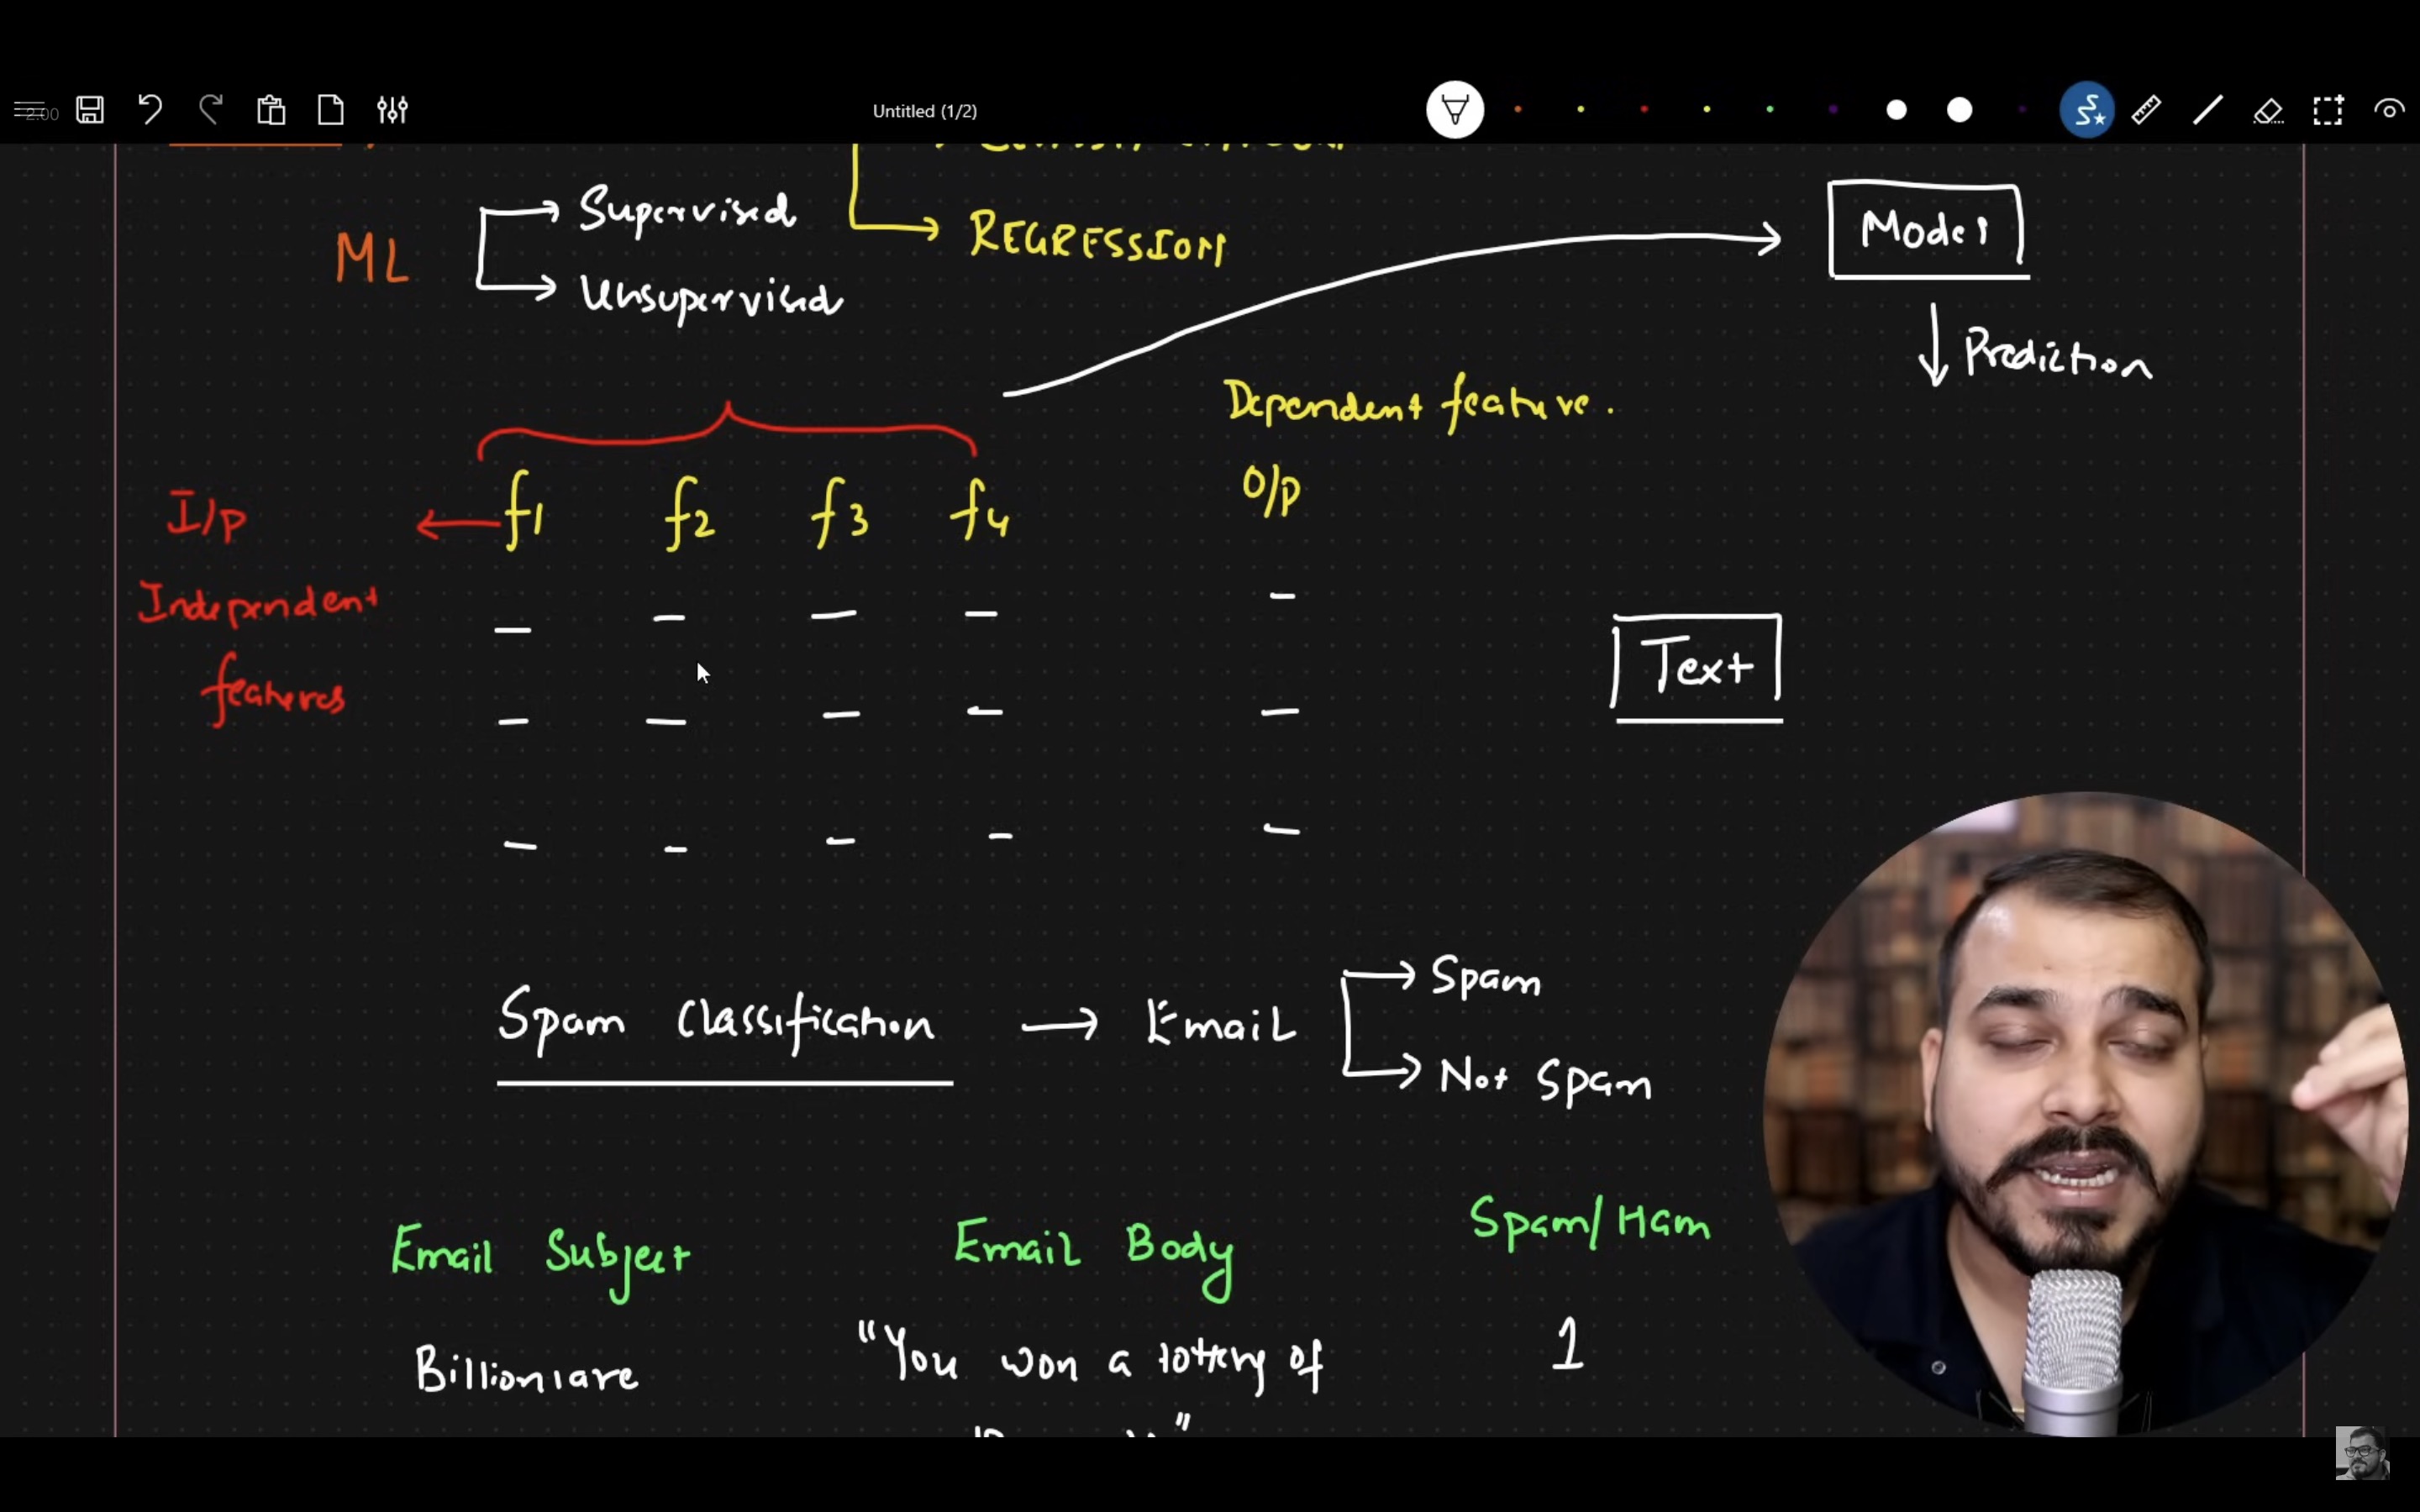 2.00
Untitled (1/2)
REGRESSION
ML
Supervised
Unsupervised
Model
Prediction
Dependent feature.
I/p
f1 f2 f3 f4
O/p
Independent
features
Text
Spam Classification → Email
Spam
Not Spam
Email Subject Email Body Spam/Ham
Billioniare "You won a lottery of 1